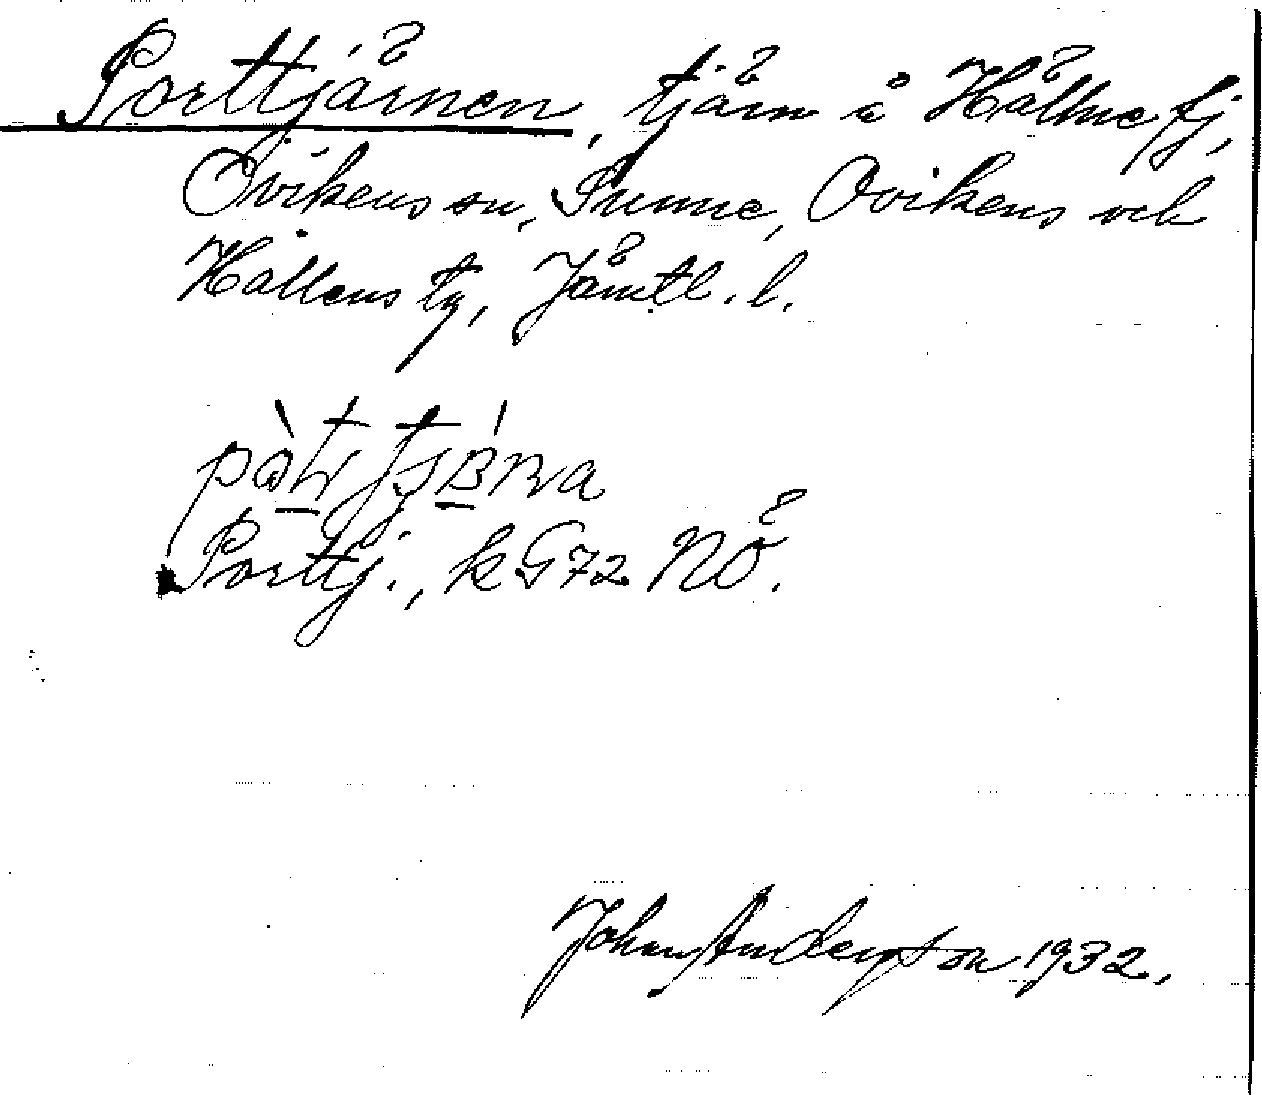 Porttjärnen, tjärn i Hällne fj,
Ovikens sn, Sunne, Ovikens och
Hallens tg, Jämtl. l.
Porttj., k G72 NÖ.
John Anderson 1932.